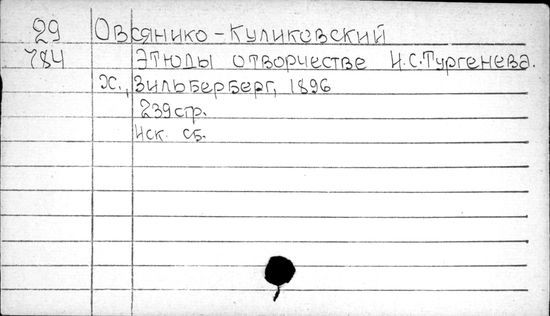 29 Овсянико-Куликовский
784 Этюды о творчестве И.С.Тургенева.
Х., Зильберберг, 1896
239стр.
Иск. сб.